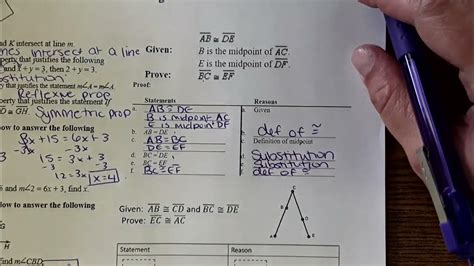 nd K intersect at line m
nes intersect at a line
perty that justifies the following
d x + y = 3, then 2 + y = 3.
stitution
perty that justifies the statement m∠A = m∠A.
Reflexive prop
perty that justifies the statement if
Symmetric prop
ow to answer the following
8x + 15 = 6x + 3
-3x -3x
15 = 3x + 3
-3 -3
12 = 3x x=4
6 and m∠2 = 6x + 3, find x.
low to answer the following
find m∠CBD.
Given:
AB ≅ DE
B is the midpoint of AC.
E is the midpoint of DF.
Prove:
BC ≅ EF
Proof:
Statements Reasons
a. AB ≅ DE a. Given
B is midpoint AC
E is midpoint DF
b. AB = DE b. def of ≅
c. AB = BC c. Definition of midpoint
DE = EF
d. BC = DE d. Substitution
e. BC = EF e. Substitution
f. BC ≅ EF f. def of ≅
Given: AB ≅ CD and BC ≅ DE
Prove: EC ≅ AC
A
B
C
D
E
Statement Reason